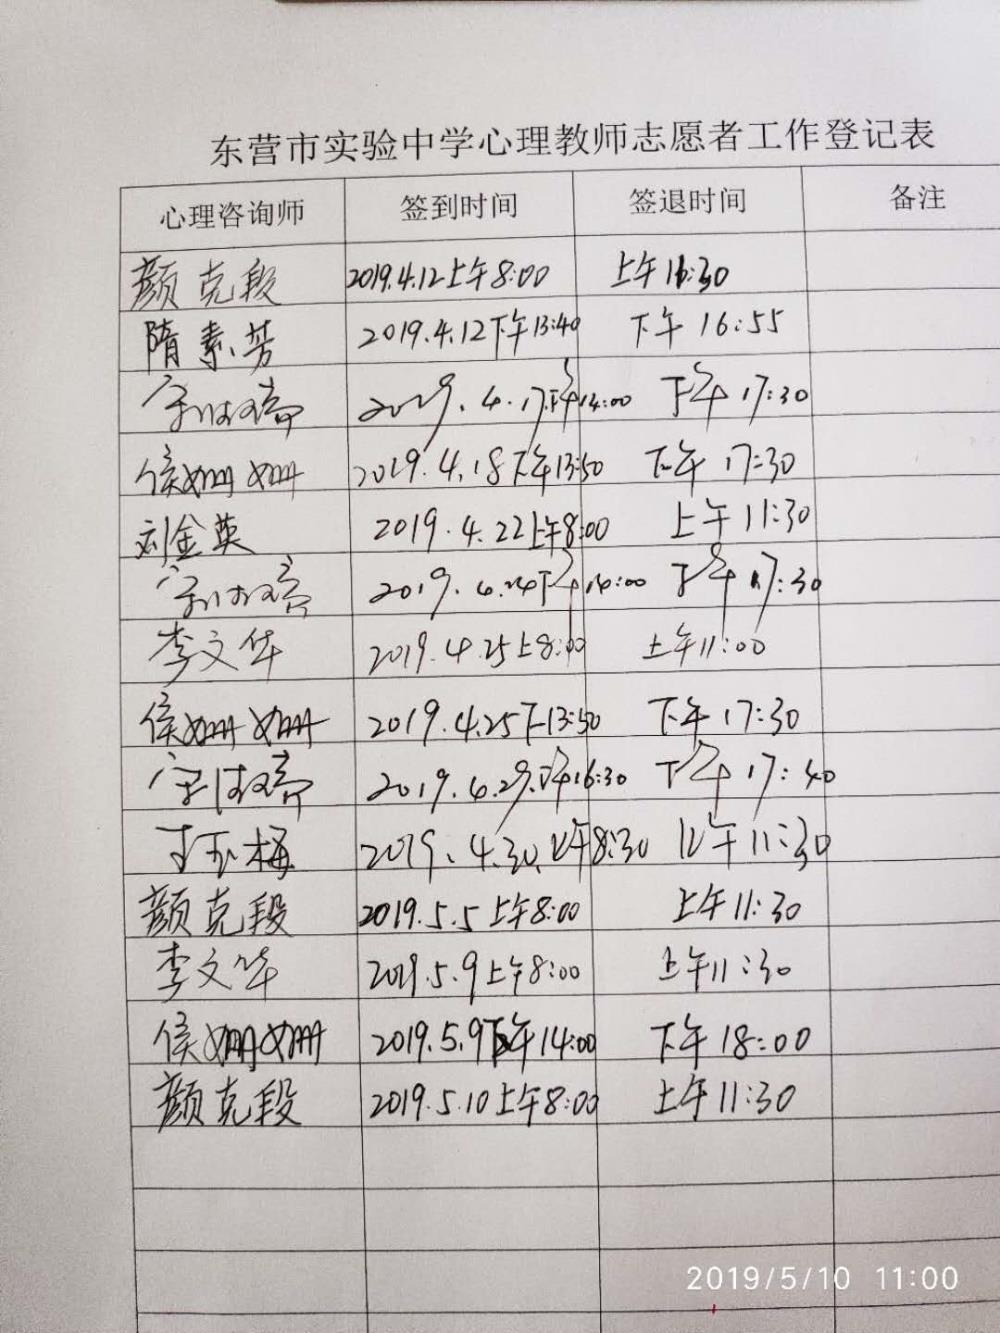 东营市实验中学心理教师志愿者工作登记表
心理咨询师 签到时间 签退时间 备注
颜克段 2019.4.12上午8:00 上午11:30
隋素芳 2019.4.12下午13:40 下午16:55
2019.4.17下午14:00 下午17:30
侯姗姗 2019.4.18下午13:50 下午17:30
刘金英 2019.4.22上午8:00 上午11:30
2019.4.24下午14:00 下午17:30
李文华 2019.4.25上8:00 上午11:00
侯姗姗 2019.4.25下13:50 下午17:30
2019.4.29下午16:30 下午17:40
于玉梅 2019.4.30上午8:30 上午11:30
颜克段 2019.5.5上午8:00 上午11:30
李文华 2019.5.9上午8:00 上午11:30
侯姗姗 2019.5.9下午14:00 下午18:00
颜克段 2019.5.10上午8:00 上午11:30
2019/5/10 11:00